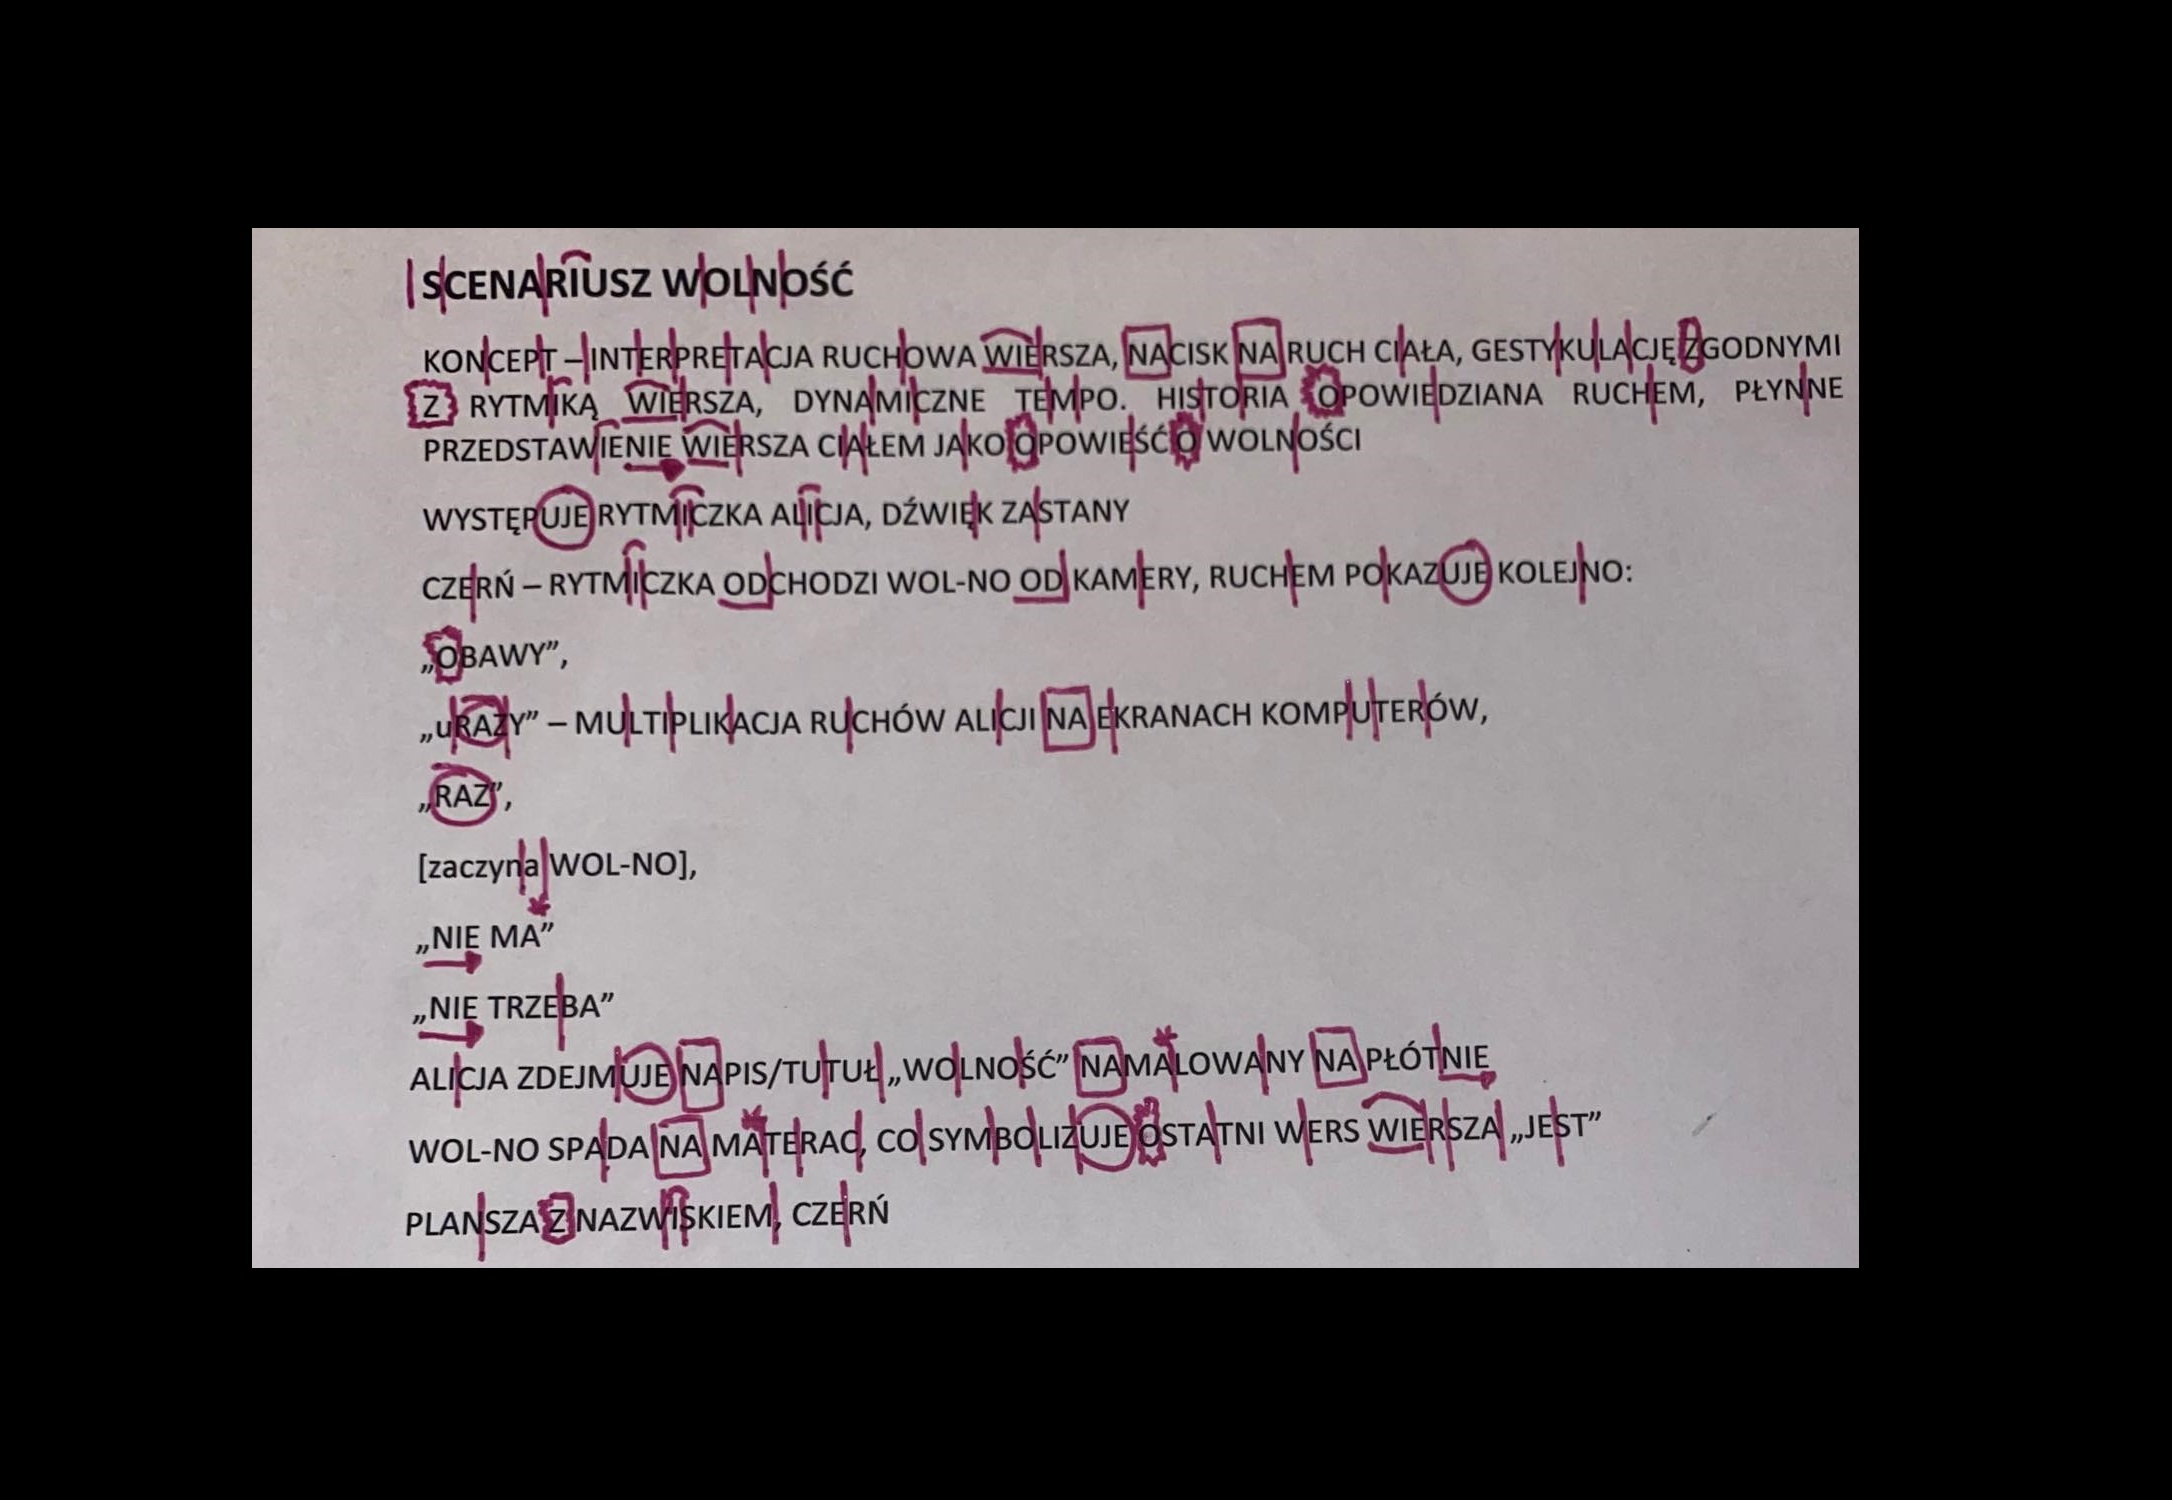 SCENARIUSZ WOLNOŚĆ
KONCEPT – INTERPRETACJA RUCHOWA WIERSZA, NACISK NA RUCH CIAŁA, GESTYKULACJĘ ZGODNYMI
Z RYTMIKĄ WIERSZA, DYNAMICZNE TEMPO. HISTORIA OPOWIEDZIANA RUCHEM, PŁYNNE
PRZEDSTAWIENIE WIERSZA CIAŁEM JAKO OPOWIEŚĆ O WOLNOŚCI
WYSTĘPUJE RYTMICZKA ALICJA, DŹWIĘK ZASTANY
CZERŃ – RYTMICZKA ODCHODZI WOL-NO OD KAMERY, RUCHEM POKAZUJE KOLEJNO:
„OBAWY”,
„uRAZY” – MULTIPLIKACJA RUCHÓW ALICJI NA EKRANACH KOMPUTERÓW,
„RAZ”,
[zaczyna WOL-NO],
„NIE MA”
„NIE TRZEBA”
ALICJA ZDEJMUJE NAPIS/TUTUŁ „WOLNOŚĆ” NAMALOWANY NA PŁÓTNIE
WOL-NO SPADA NA MATERAC, CO SYMBOLIZUJE OSTATNI WERS WIERSZA „JEST”
PLANSZA Z NAZWISKIEM, CZERŃ